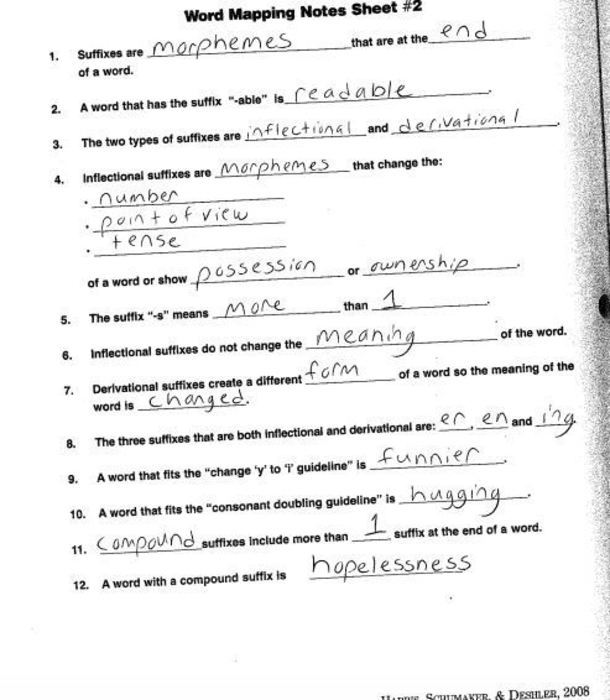 Word Mapping Notes Sheet #2
1. Suffixes are morphemes that are at the end
of a word.
2. A word that has the suffix "-able" is readable.
3. The two types of suffixes are inflectional and derivational.
4. Inflectional suffixes are morphemes that change the:
• number
• point of view
• tense
of a word or show possession or ownership.
5. The suffix "-s" means more than 1.
6. Inflectional suffixes do not change the meaning of the word.
7. Derivational suffixes create a different form of a word so the meaning of the
word is changed.
8. The three suffixes that are both inflectional and derivational are: er, en and ing.
9. A word that fits the "change 'y' to 'i' guideline" is funnier.
10. A word that fits the "consonant doubling guideline" is hugging.
11. Compound suffixes include more than 1 suffix at the end of a word.
12. A word with a compound suffix is hopelessness
SCHUMAKER, & DESHLER, 2008